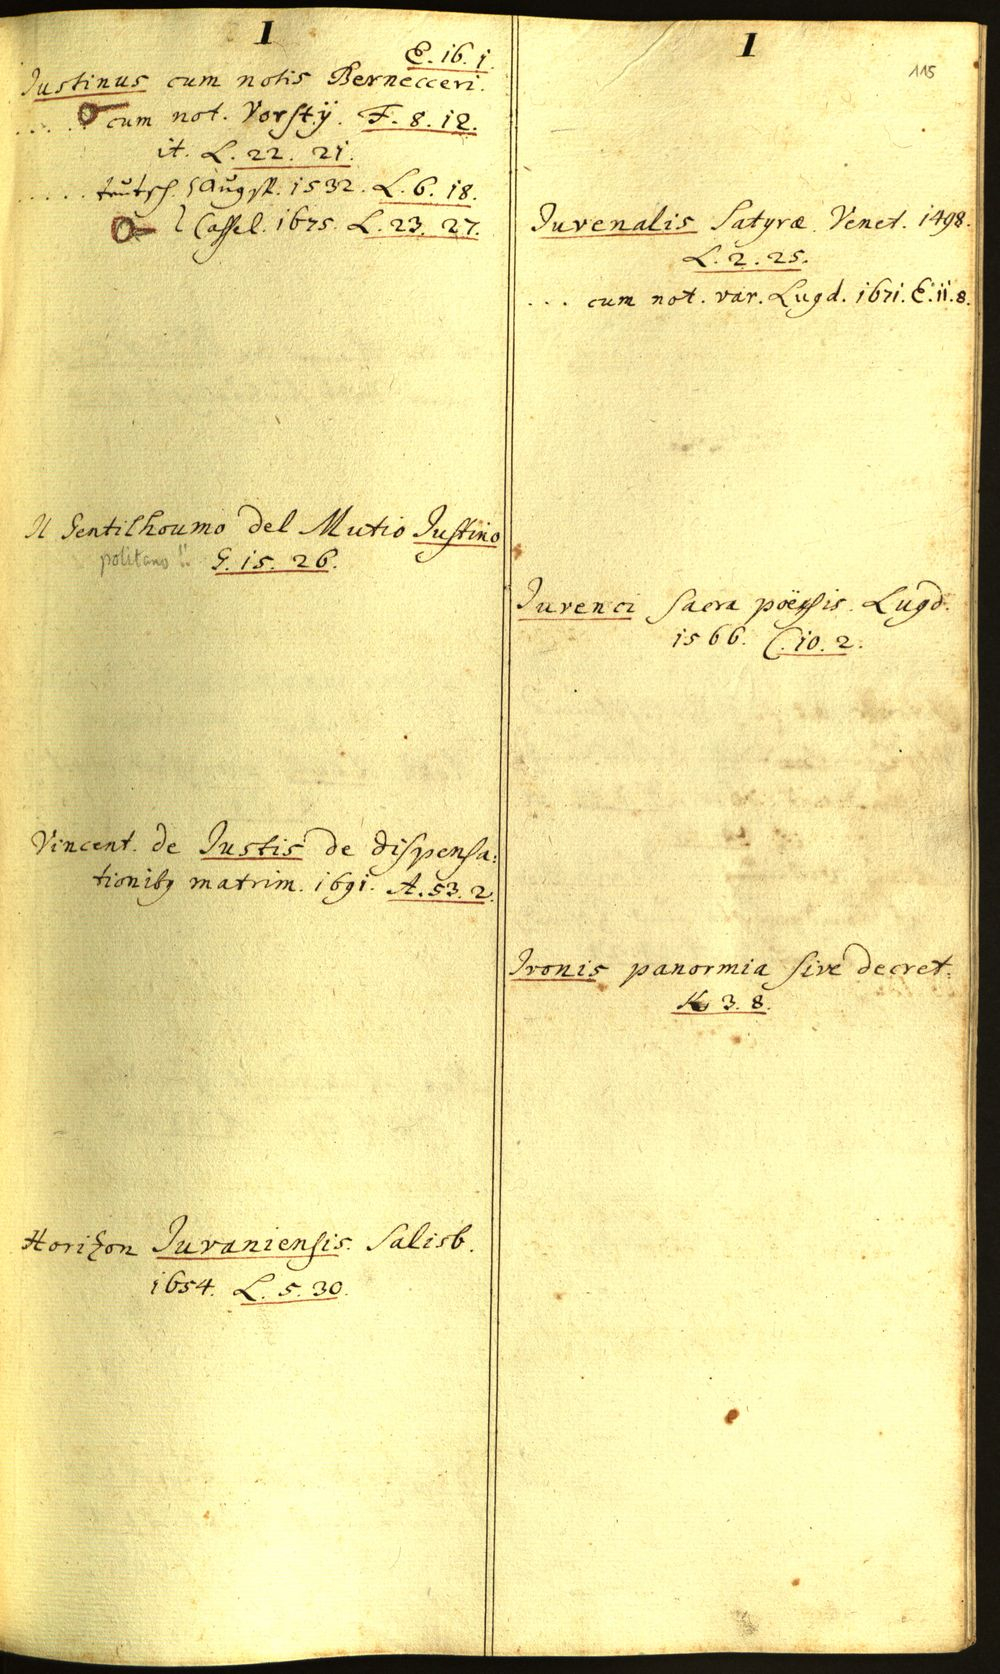 I
E. 16. 1.
Iustinus cum notis Bernecceri.
..... cum not. Vorstij. F. 8. 12.
it. L. 22. 21.
..... teutsch. Augsp. 1532. L. 6. 18.
Cassel. 1675. L. 23. 27.
Il Gentilhoumo del Mutio Justino
politano !! G. 15. 26.
Vincent. de Iustis de dispensa:
tionibq matrim. 1691. A. 53. 2.
Horizon Juvaniensis. Salisb.
1654. L. 5. 30.
I
115
Juvenalis Satyræ. Venet. 1498.
L. 2. 25.
... cum not. var. Lugd. 1671. E. 11. 8.
Juvenci sacra poësis. Lugd.
1566. C. 10. 2.
Ivonis panormia sive decret.
K. 3. 8.